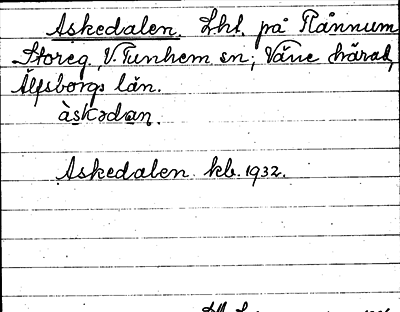 Askedalen. Lht. på Rånnum
Storeg. V. Tunhem sn; Väne härad,
Älfsborgs län.
àskədan.
Askedalen kb. 1932.